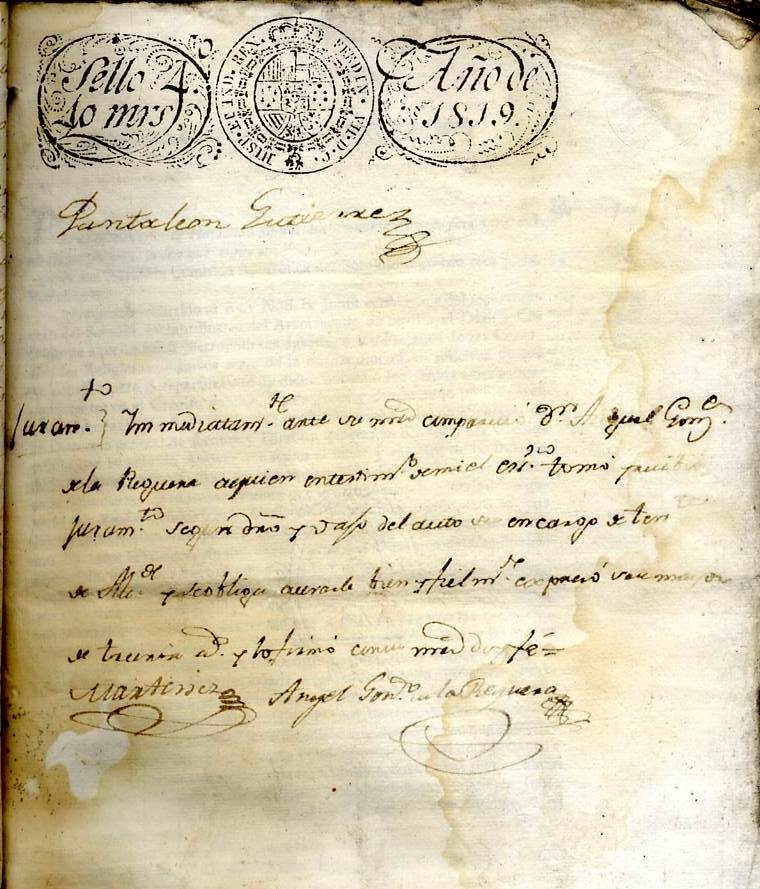 Sello 4.
40 mrs
HISP. ET IND. REX. FERDIN. VII. D. G.
Año de
1819.
Pantaleon Gutierrez
Juram.to } Immediatam.te ante su mrd comparecio Dn Angel Gonz.
de la Reguera a quien en testim.o de mi el es.no tomó y recibió
Juram.to segun dro y vajo del auto se encargo de
de y se obliga a bien y fiel m.te expresó ser mayor
de treinta a.s y lo firmó con su mrd doy fé=
Martinez Angel Gonz.o de la Reguera